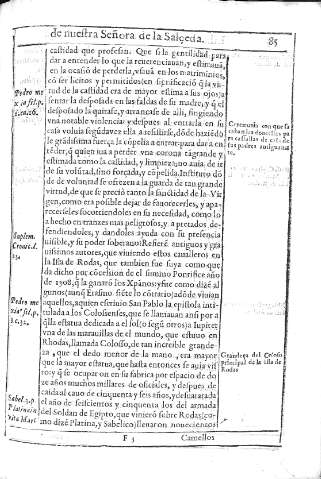 de nuestra Señora de la Salceda.
85
castidad que professan. Que si la gentilidad para
dar a entender lo que la reuerenciauan, y estimauã,
en la ocasiõ de perderla, vsauã en los matrimonios,
cõ ser licitos y permitidos, en significaciõ q̃ la vir-
tud de la castidad era de mayor estima a sus ojos;
sentar la desposada en las faldas de su madre, y q̃ el
desposado la quitasse, y arrancasse de alli, fingiendo
vna notable violencia: y despues al entrarla en su
casa voluia segũda vez ella a resistirse, dõde haziẽdo
le grãdissima fuerça la cõpelia a entrar: para dar a en-
tẽder, q̃ quien yua a perder vna corona tã grande y
estimada como la castidad, y limpieza, no auia de ir
de su volũtad, sino forçada, y cõpelida. Instituto dõ
de de voluntad se ofrezen a la guarda de tan grande
virtud, de que se preciò tanto la sanctidad de la Vir
gen, como era posible dejar de fauorecerles, y apa-
recerseles socorriendolos en su necesidad, como lo
a hecho en tranzes mas peligrosos, y apretados, de-
fendiendoles, y dandoles ayuda con su presencia
uisible, y su poder soberano? Refierẽ antiguos y gra-
uissimos autores, que viuiendo estos caualleros en
la Isla de Rodas, que tambien fue suya como que
da dicho por cõcesion de el summo Pontifice año
de 1308, q̃ la ganarõ los Xp̃ianos: y fue como dizẽ al
gunos (aunq̃ Erasmo siẽte lo cõtrario) adõde viuian
aquellos, a quien escriuio San Pablo la epistola inti-
tulada a los Colosienses, que se llamauan ansi por a
q̃lla estatua dedicada a el sol (o segũ otros) a Iupiter
vna de las marauillas de el mundo, que estuuo en
Rhodas, llamada Colosso, de tan increible grande
za, que el dedo menor de la mano, era mayor
que la mayor estatua, que hasta entonces se auia vis
to; y q̃ se ocuparon en su fabrica por espacio de do
ze años muchos millares de oficiales, y despues de
caida al cauo de cinquenta y seis años, y desbaratada
el año de seiscientos y cinquenta los del armada
del Soldan de Egipto, que viniero sobre Rodas (co-
mo dize Platina, y Sabelico) llenaron nouecientos
F 5
Camellos
Pedro me
xia sil. p.
Baptem.
Pedro me
xia sil. p.
3. c. 32.
Sabel.
Platina in
vita Mart
Ceremonia con que sa
cabauan
tiguamen
Grandeza del Colosso
principal de la isla de
Rodas